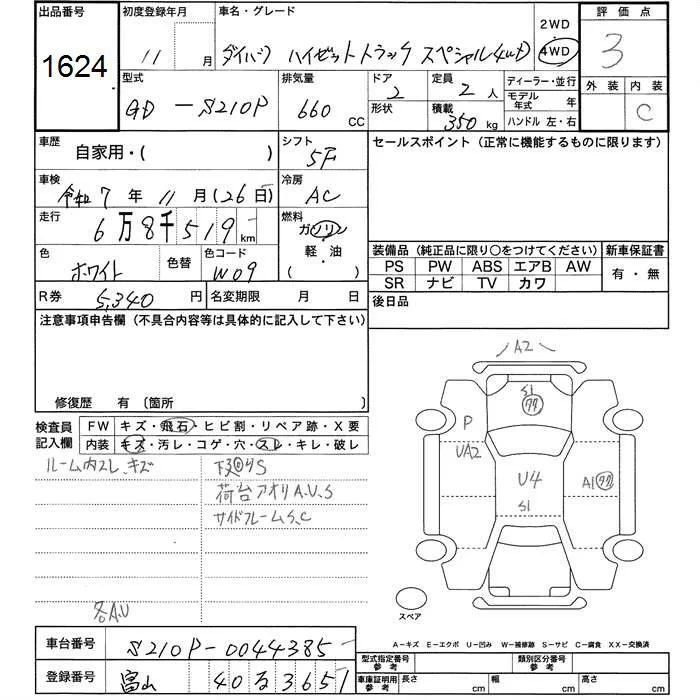 出品番号 初度登録年月 車名・グレード 2WD 評価点
1624 11 月 ダイハツ ハイゼットトラック スペシャル4WD 4WD 3
型式 排気量 ドア 定員 ディーラー・並行 外装 内装
GD-S210P 660 CC 2 2 人 モデル年式 年 C
形状 積載 350 kg ハンドル 左・右
車歴 自家用・( ) シフト 5F セールスポイント(正常に機能するものに限ります)
車検 令和 7 年 11 月 (26日) 冷房 AC
走行 6 万 8 千 5 1 9 km 燃料 ガソリン
軽・油
( )
色 ホワイト 色替 色コード W09
装備品(純正品に限り○をつけてください) 新車保証書
PS PW ABS エアB AW 有・無
SR ナビ TV カワ
R券 5,340 円 名変期限 月 日 後日品
注意事項申告欄(不具合内容等は具体的に記入して下さい)
修復歴 有 〔箇所
検査員記入欄 FW キズ・飛石・ヒビ割・リペア跡・X要
内装 キズ・汚レ・コゲ・穴・スレ・キレ・破レ
ルーム内スレ、キズ 下回りS
荷台アオリA.U.S
サイドフレームS.C
各A.U
A2
S1
P
UA2
U4
A1
S1
スペア
A-キズ E-エクボ U-凹み W-補修跡 S-サビ C-腐食 XX-交換済
車台番号 S210P-0044385
型式指定番号 参考 類別区分番号 参考
登録番号 富山 40 る 3651
車庫証明用 参考 長さ cm 幅 cm 高さ cm